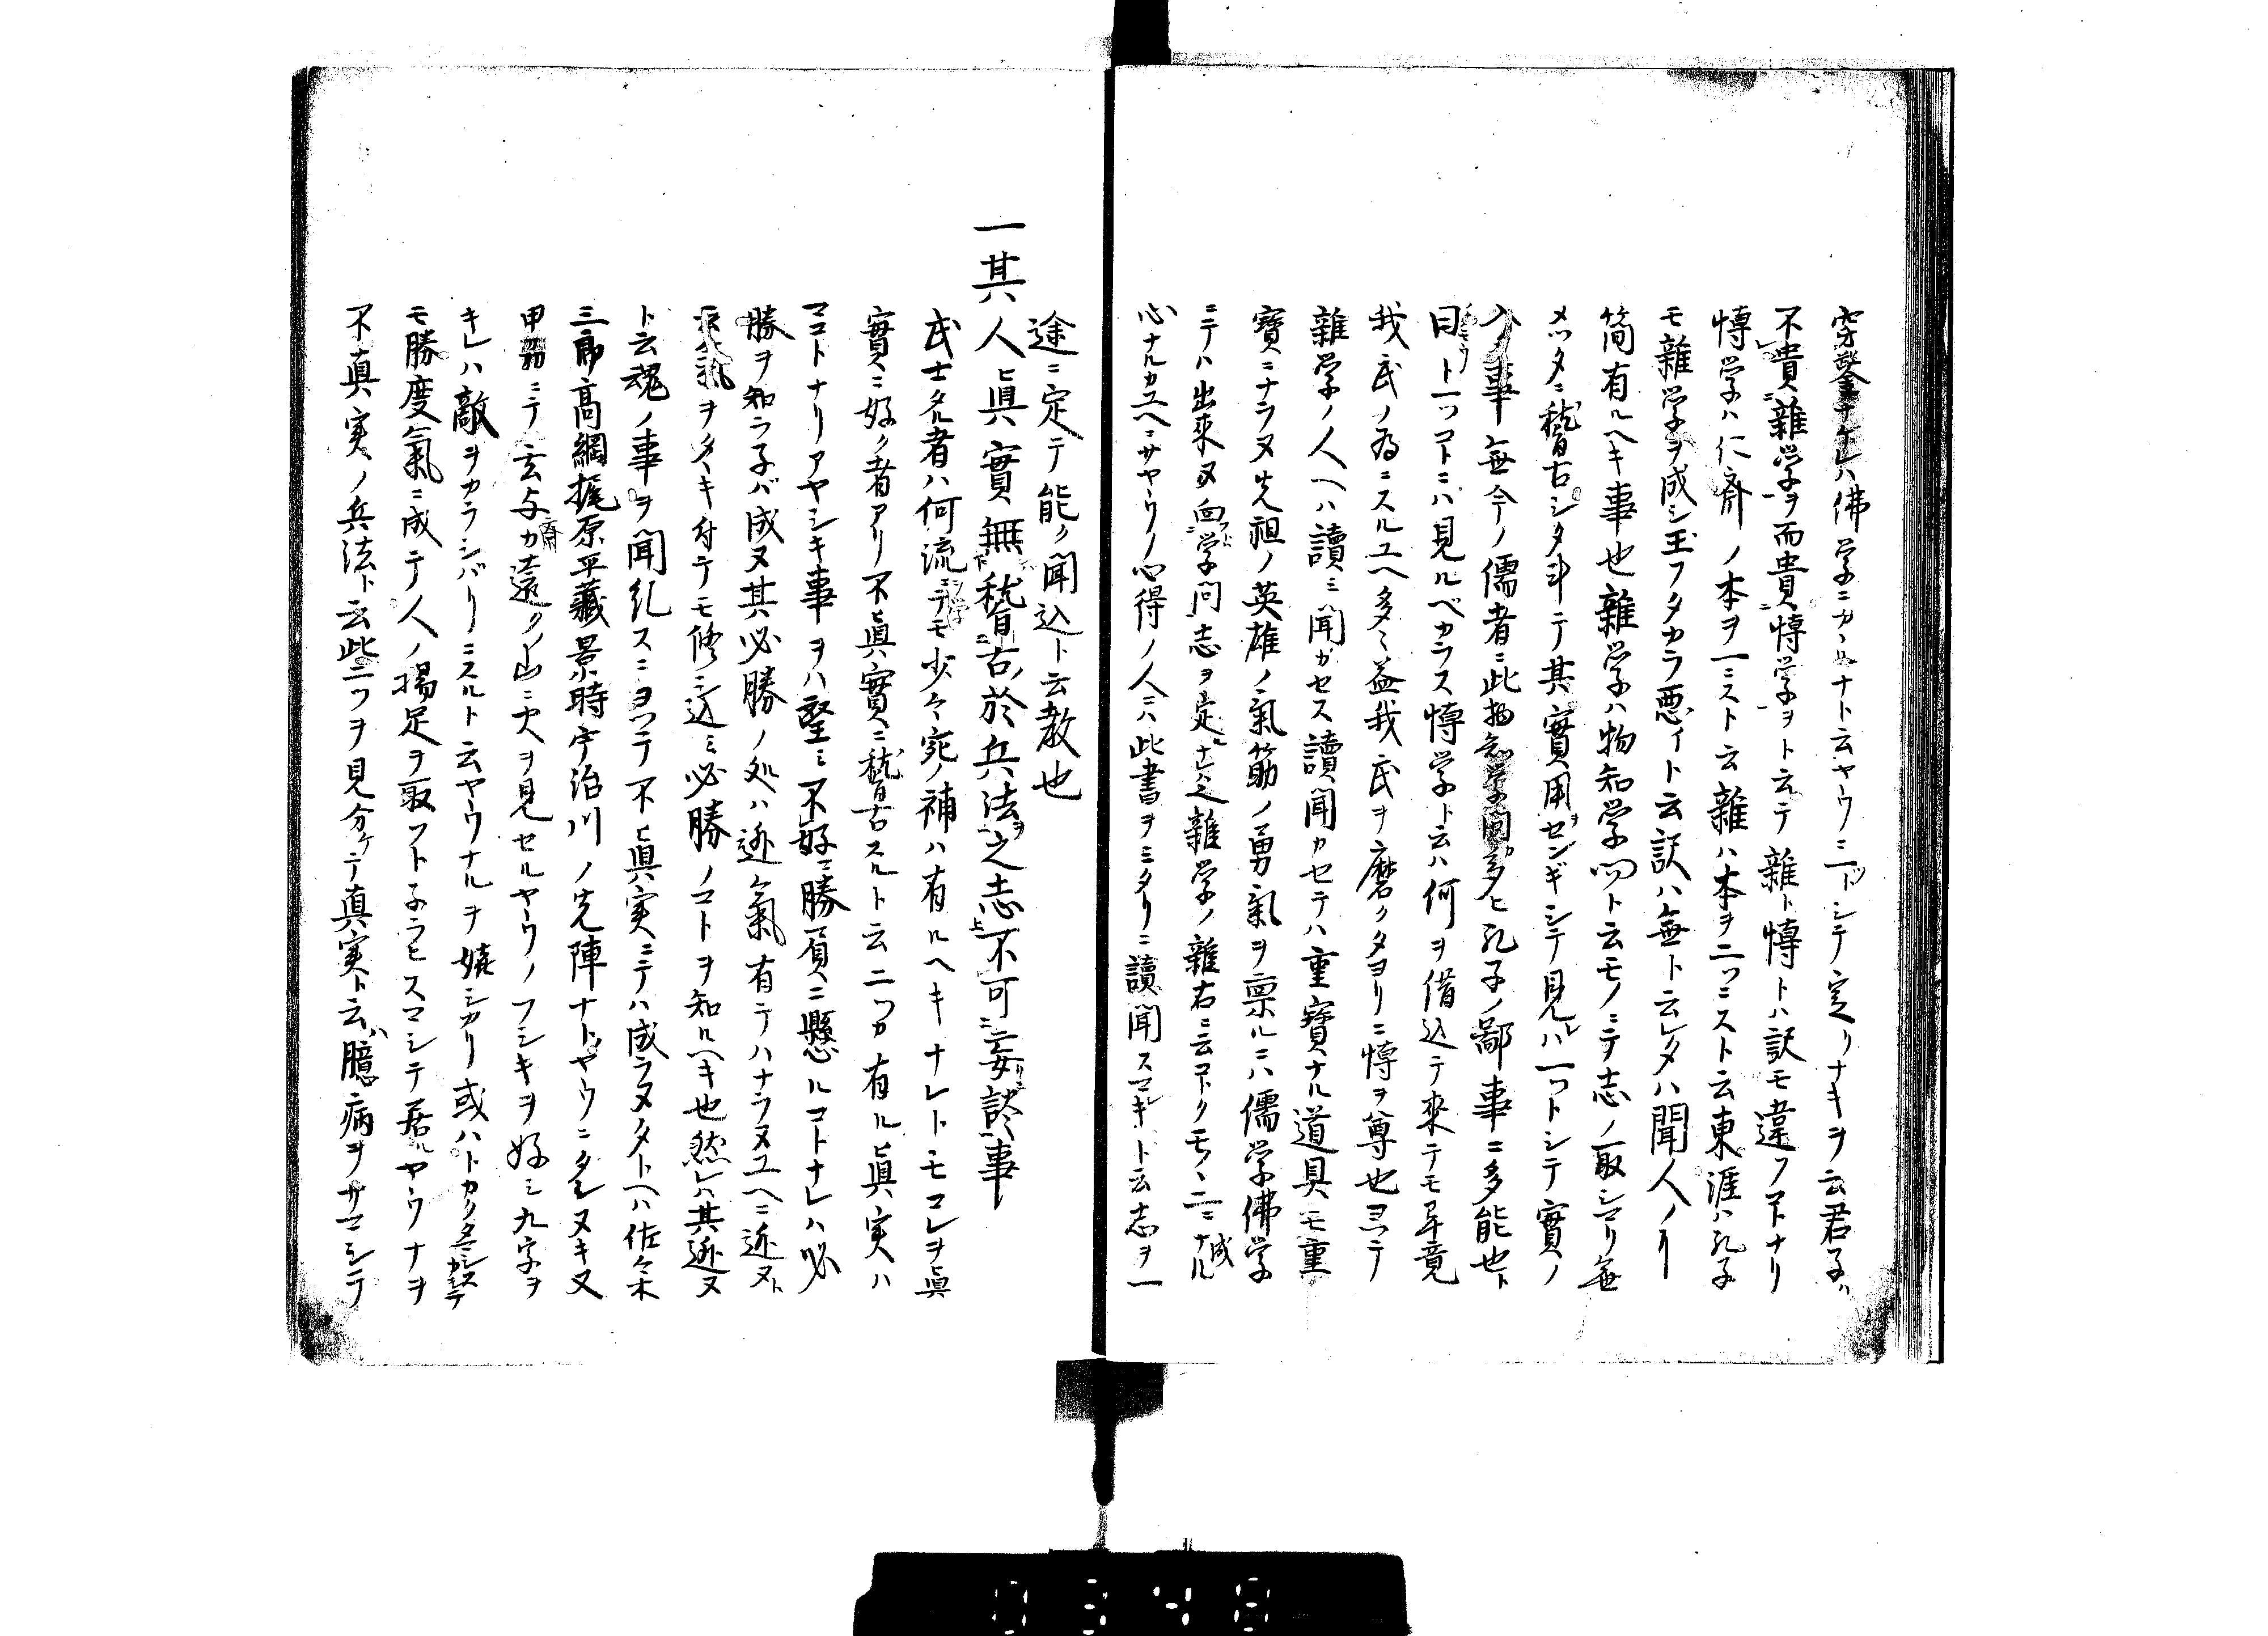 穿鑿ナケレハ佛学ニカヽルナト云ヤウニ一ツトシテ定リナキヲ云君子ハ
不貴雜学ヲ而貴博学ヲト云テ雜ト博トハ訳モ違フコトナリ
博学ハ仁斎ノ本ヲ一ミスト云雜ハ本ヲ二ツニスト云東涯ハ孔子
モ雜学ヲ成シ玉フタカラ悪イト云訳ハ無ト云レタハ聞人ノ
簡有ルヘキ事也雜学ハ物知学問ト云モノニテ志ノ取シマリ無
メツタニ稽古シタ斗テ其實用センギシテ見レハ一ツトシテ實ノ
入事無今ノ儒者ニ此多ヒ孔子ノ鄙事ニ多能也ト
曰ト一ツコトニハ見ルベカラス博学ト云ハ何ヲ借込テ来テモ畢竟
我氏ノ為ニスルユヘ多々益我氏ヲ磨クタヨリニ博ヲ尊也ヨツテ
雜学ノ人ヘハ讀ミ聞カセス讀聞カセテハ重寶ナル道具モ重
寶ニナラヌ先祖ノ英雄ノ氣節ノ勇氣ヲ禀ルニハ儒学佛学
ニテハ出来ヌ学問志ヲ定雜学ノ雜右ニ云コトクモノニニ成ナル
心ナルカユヘニサヤウノ心得ノ人ニハ此書ヲミタリニ讀聞スマキト云志ヲ一
途ニ定テ能ク聞込ト云教也
一其人眞實無稽古於兵法之志不可妄談事
武士タル者ハ何流ニテモ少々宛ノ補ハ有ルヘキナレトモコレヲ眞
實ニ好ク者アリ不眞實ニ稽古スルト云二ツカ有ル眞実ハ
マコトナリアヤシキ事ヲハ堅ミ不好ニ勝負ニ懸ルコトナレハ必
勝ヲ知ラ子バ成ヌ其必勝ノ処ハ遊氣有テハナラヌユヘニ遊ヌト
氣ヲタヽキ付テモ修ニ込ミ必勝ノコトヲ知ルヘキ也然レハ其遊ヌ
ト云魂ノ事ヲ聞礼スニヨツテ不眞実ニテハ成ラヌタトヘハ佐々木
三郎高綱梶原平蔵景時宇治川ノ先陣ナトヤウニタシヌキ又
甲ニテ云与カ遠クノ山ニ火ヲ見セルヤウノフシキヲ好ミ九字ヲ
キレハ敵ヲカラシバリニスルト云ヤウナルヲ嬉シカリ或ハトカク
モ勝度氣ニ成テ人ノ揚足ヲ取ツト子ラヒスマシテ居ルヤウナヲ
不眞実ノ兵法ト云此二ツヲ見分ケテ眞実ト云ハ臆病ヲサマシテ